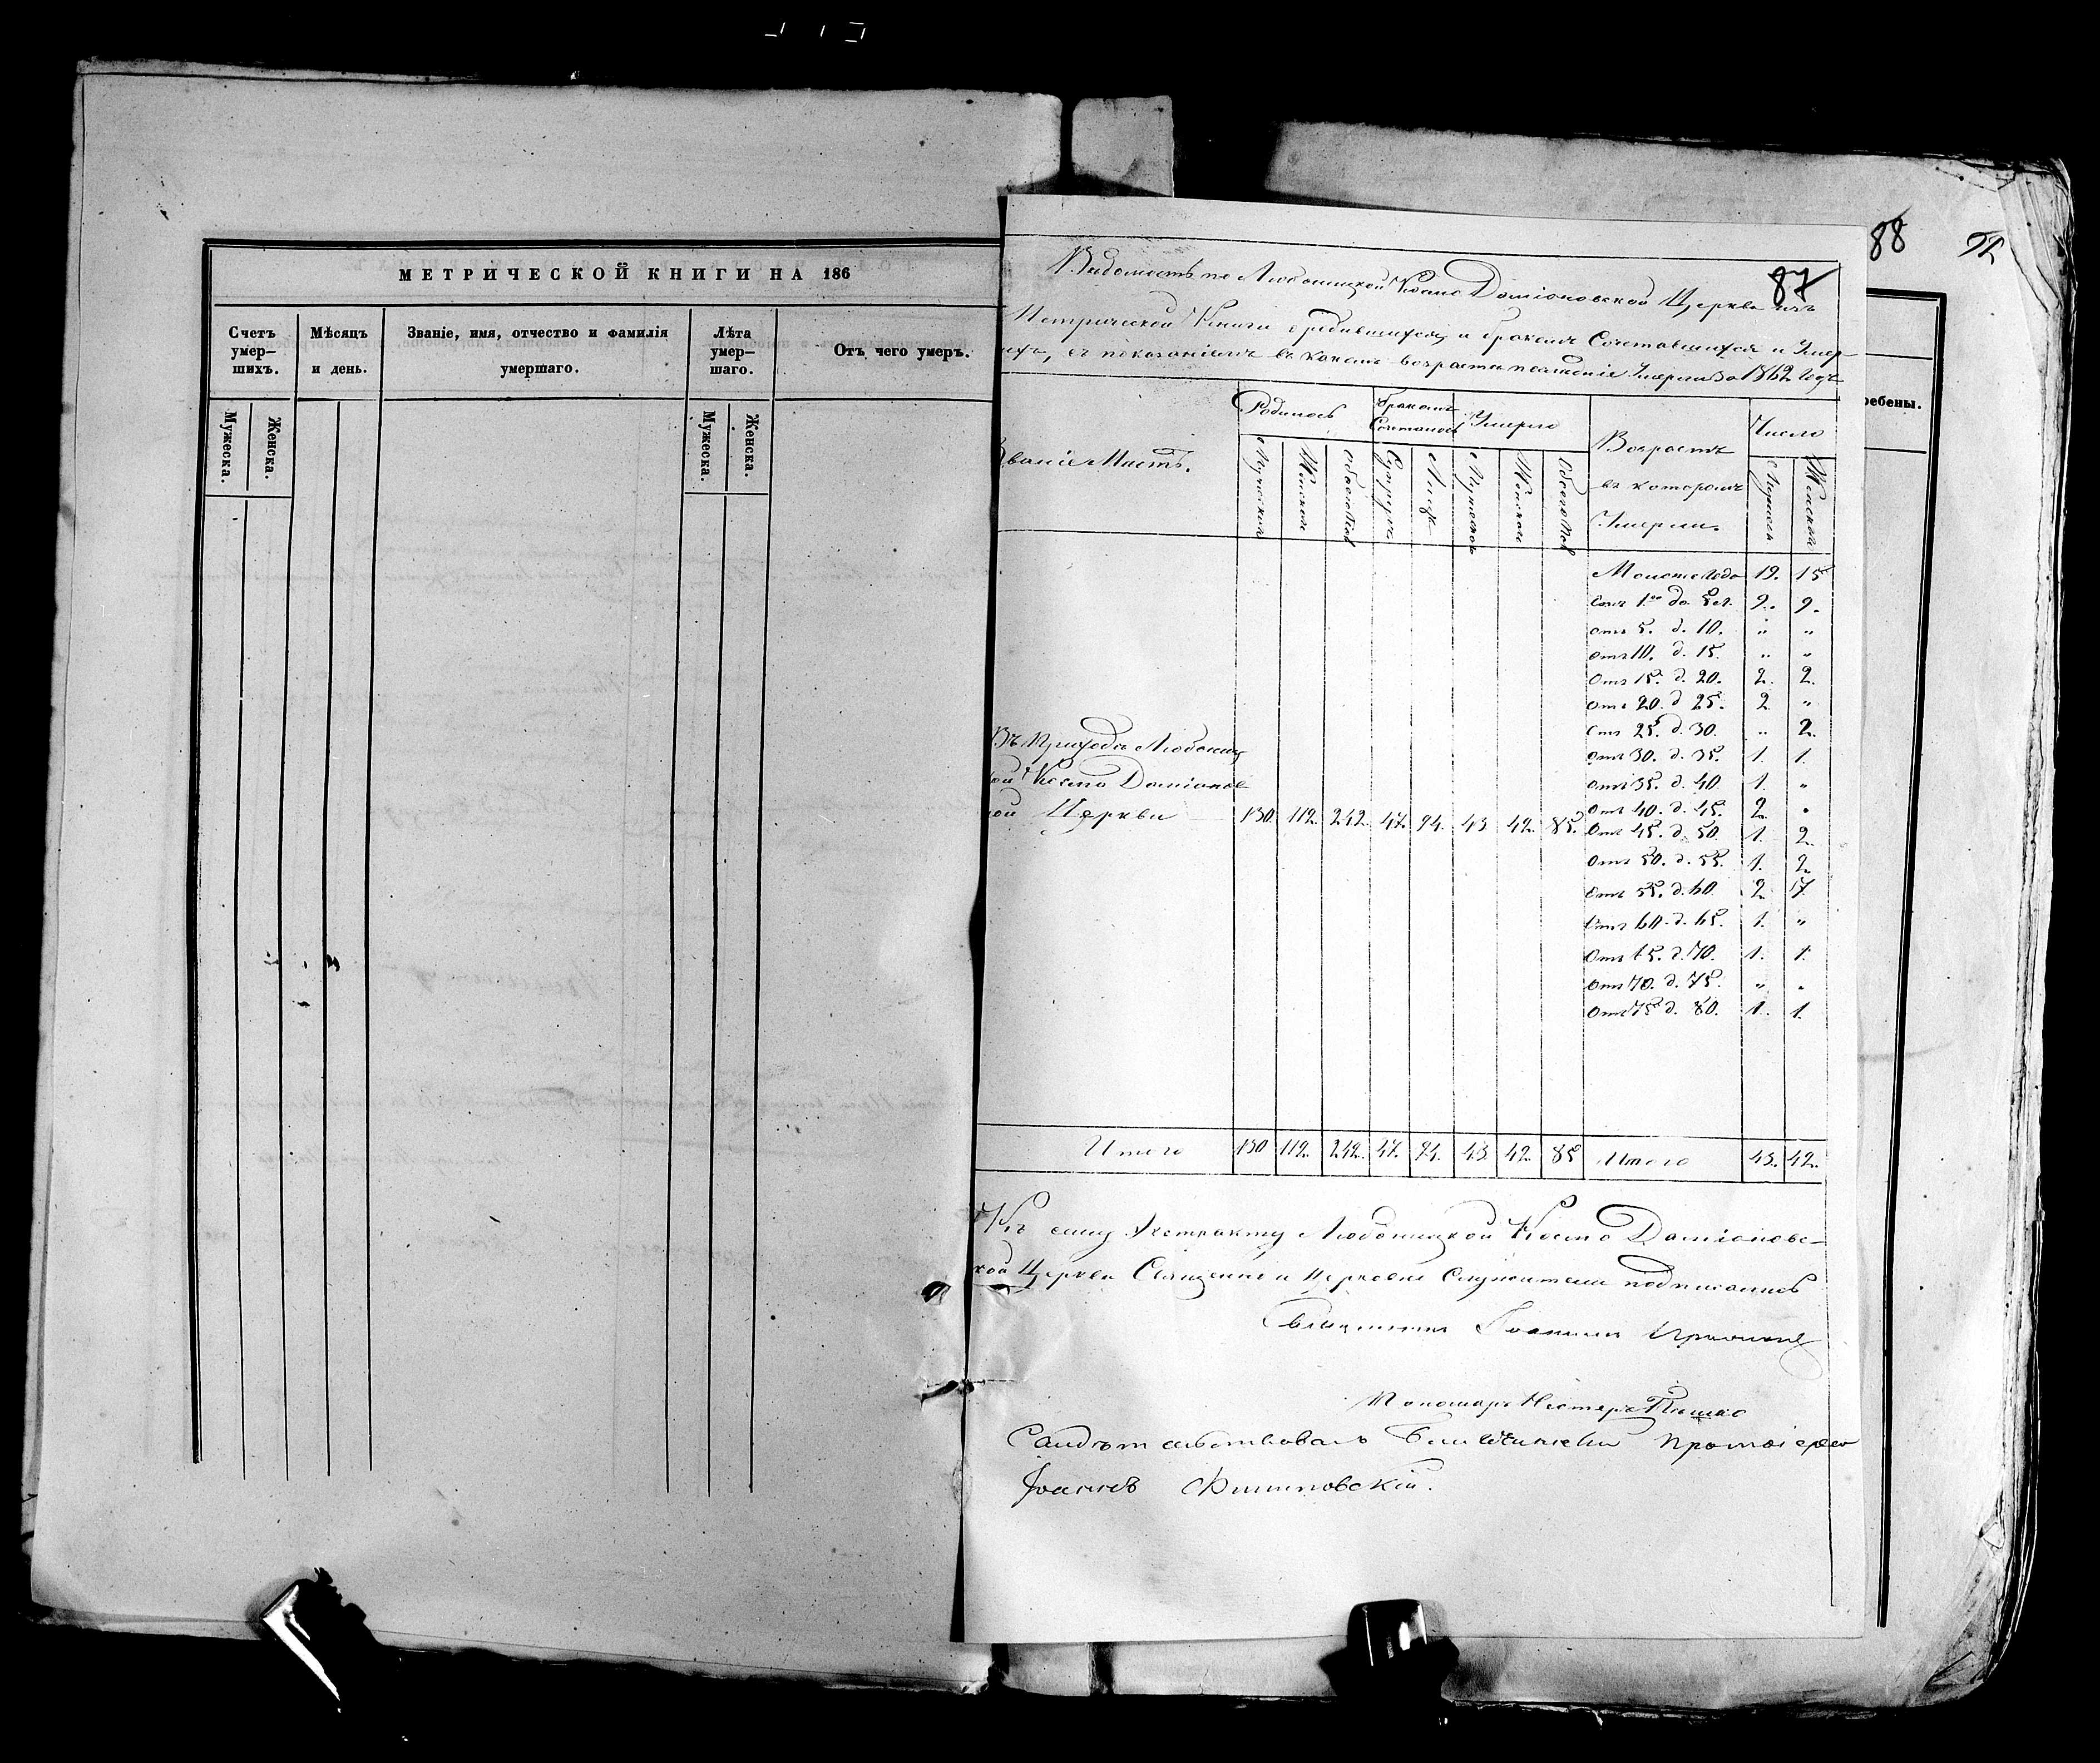 МЕТРИЧЕСКОЙ КНИГИ НА 186
Счетъ умер—шихъ.
Мѣсяцъ и день.
Званіе, имя, отчество и фамилія умершаго.
Лѣта умер—шаго.
Отъ чего умеръ.
Мужеска.
Женска.
Мужеска.
Женска.
88
87
ребены.
Вѣдомость по Любоницкой Космо Даміановской Церкви изъ
Метрической Книги о родившихся, и бракомъ Сочетавшихся и Умер-
ихъ, съ показаніемъ въ какомъ возрастѣ послѣдніе Умерли за 1862 годъ
Званіе Мѣстъ.
Родилось
Бракомъ Сочеталось
Умерло
Возрастъ въ которомъ Умерли.
Число
Мужеска
Женска
Обоего Пола
Супружествъ
Лицъ
Мужеска
Женска
Обоего Пол
Мужеска
Женска
Менѣе Года 19. 15
Отъ 1го до. 5 л. 9. 9.
отъ 5. д. 10. „ „
отъ 10. д. 15. „ „
отъ 15. д. 20. 2. 2.
отъ 20. д 25. 2 „
отъ 25. д. 30. „ 2.
отъ 30. д. 35. 1. 1.
отъ 35. д. 40 1. „
отъ 40. д. 45. 2. „
отъ 45. д. 50. 1. 2.
отъ 50. д. 55. 1. 2.
отъ 55. д. 60 2 7.
отъ 60. д. 65. 1. „
отъ 65. д. 70. 1. 1.
отъ 70. д. 75. „ „
отъ 75 д. 80. 1. 1.
Въ Приходѣ Любониц
кой Космо Даміанов
кой Церкви 130. 112. 242. 47. 94. 43. 42. 85.
Итого 130 112. 242. 47. 94. 43. 42. 85 Итого 43. 42.
Къ сему Экстракту Любоницкой Космо Даміановс-
кой Церкви Священно и Церковно Служители подписались
Священникъ Іоаннъ
Пономарь Несторъ
Свидѣтельствовалъ Благочинный Протоіерей
Іоаннъ